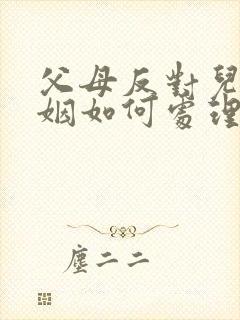 父母反對兒
姻如何處理
塵二二